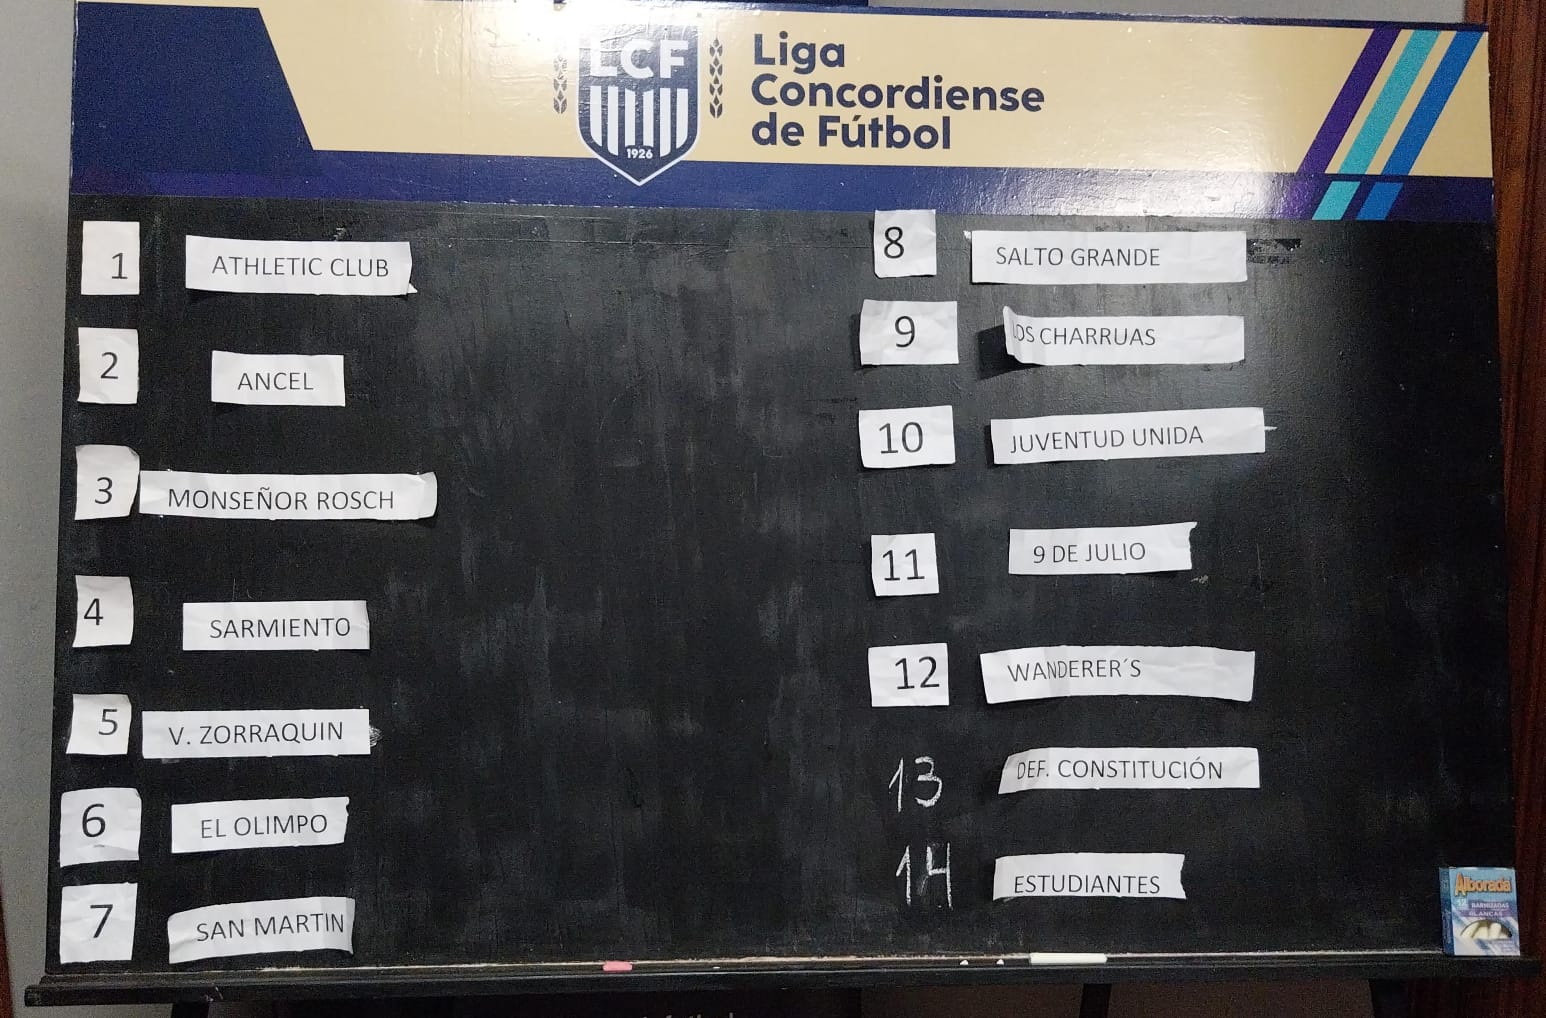 LCF
1926
Liga
Concordiense
de Fútbol
1 ATHLETIC CLUB
2 ANCEL
3 MONSEÑOR ROSCH
4 SARMIENTO
5 V. ZORRAQUIN
6 EL OLIMPO
7 SAN MARTIN
8 SALTO GRANDE
9 LOS CHARRUAS
10 JUVENTUD UNIDA
11 9 DE JULIO
12 WANDERER´S
13 DEF. CONSTITUCIÓN
14 ESTUDIANTES
Alborada
BLANCAS